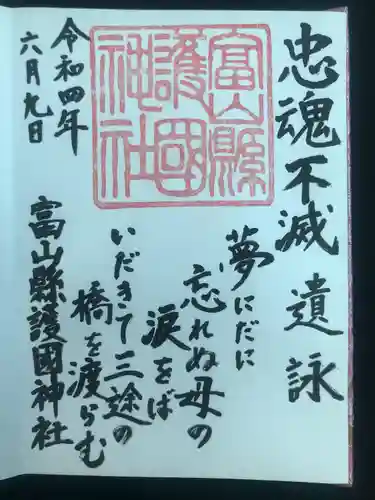 忠魂不滅 遺詠
富山縣
護國
神社
夢にだに
忘れぬ母の
涙をば
いだきて三途の
橋を渡らむ
令和四年
六月九日
富山縣護國神社